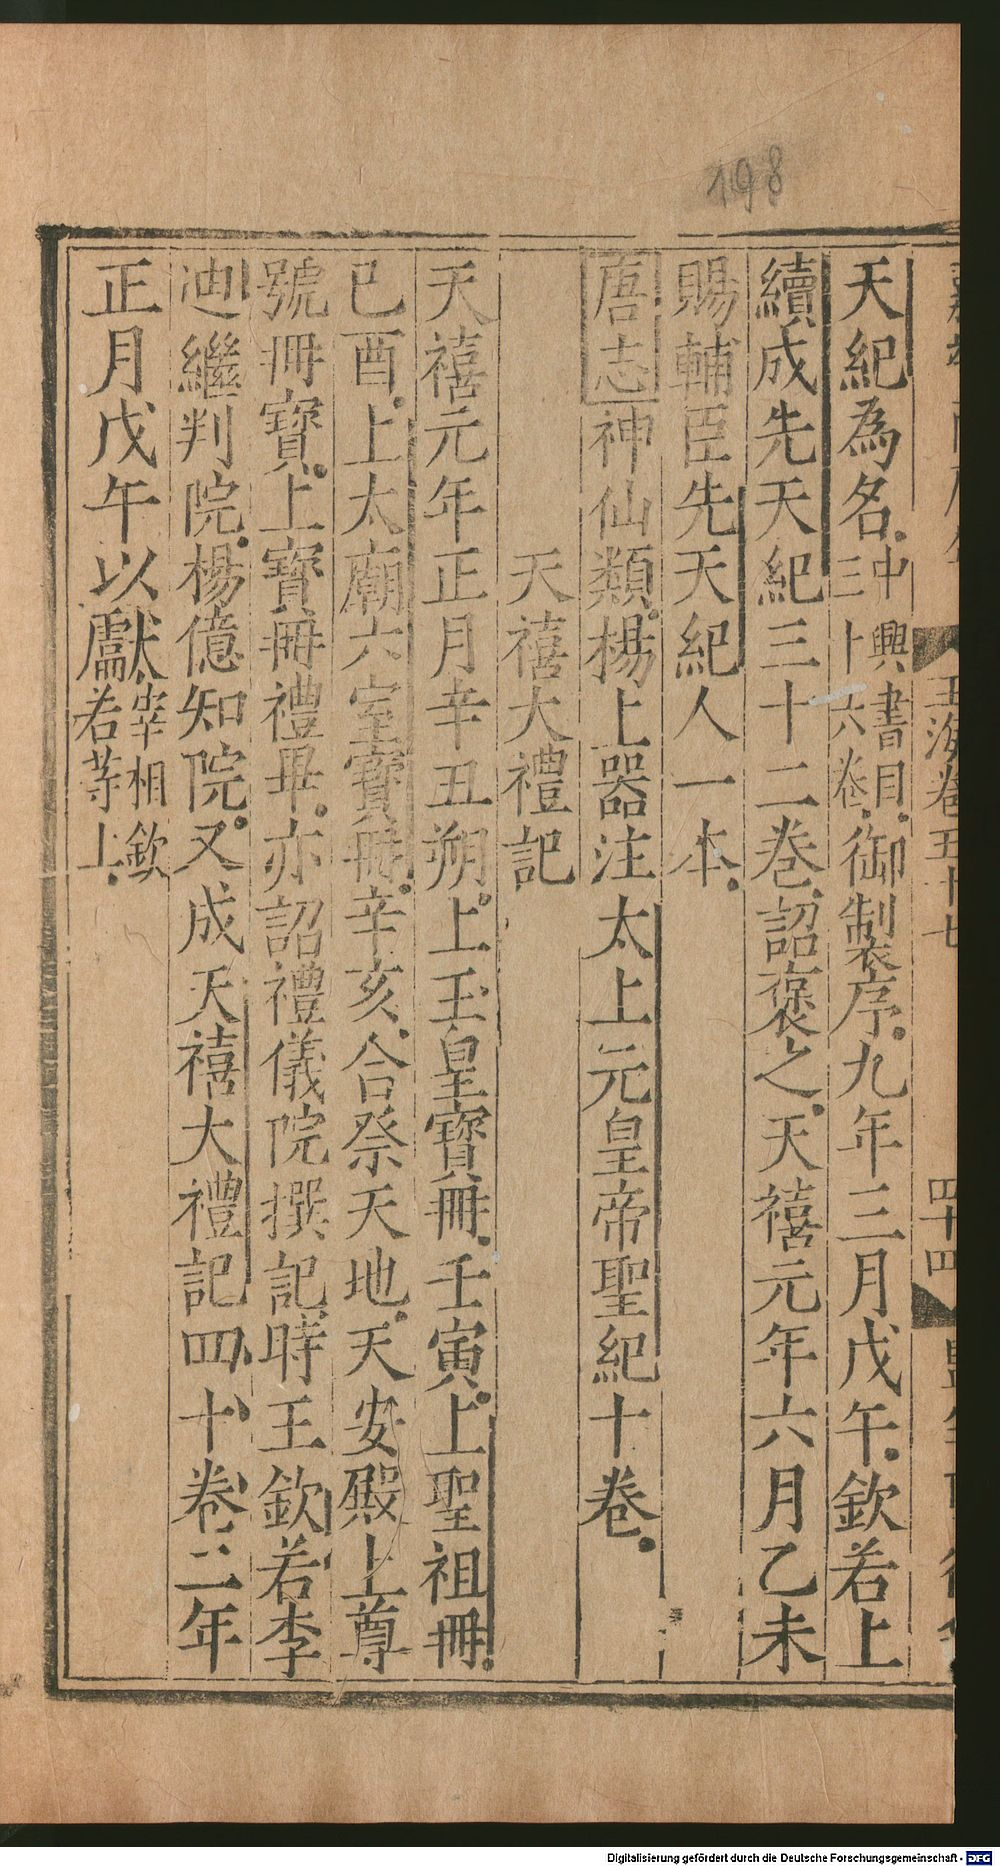 198
玉海卷五十七 四十四
天紀為名中興書目三十六卷御製序九年三月戊午欽若上
續成先天紀三十二卷詔褒之天禧元年六月乙未
賜輔臣先天紀人一本
唐志神仙類楊上器注太上元皇帝聖紀十卷
天禧大禮記
天禧元年正月辛丑朔上玉皇寶冊壬寅上聖祖冊
已酉上太廟六室寶冊辛亥合祭天地天安殿上尊
號冊寶上寶冊禮畢亦詔禮儀院撰記時王欽若李
迪繼判院楊億知院又成天禧大禮記四十卷二年
正月戊午以獻宰相欽若等上
Digitalisierung gefördert durch die Deutsche Forschungsgemeinschaft - DFG